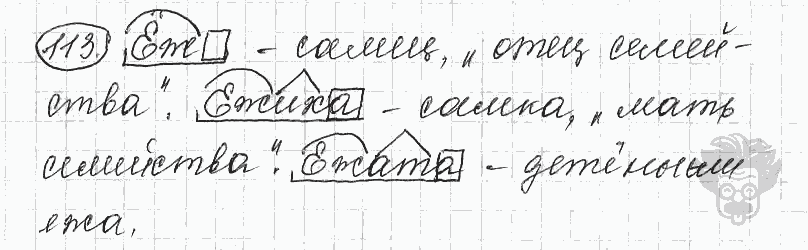 113. Ёж – самец, „отец семей-
ства". Ежиха – самка, „мать
семейства". Ежата – детёныши
ежа.